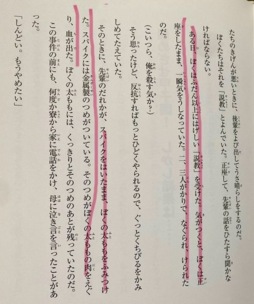 たちのきげんが悪いときに、後輩をよび出してうさ晴らしをするのだ。
ぼくたちはそれを「説教」とよんでいた。正座して、先輩の話をひたすら聞かな
ければならない。
ある日、ぼくはふだん以上にはげしい「説教」を受けた。気がつくと、ぼくは正
座をしたまま、一瞬気をうしなっていた。二、三人がかりで、なぐられ、けられた
のだ。
(こいつら、俺を殺す気か?)
そう思ったけど、反抗すればもっとひどくやられるので、ぐっとくちびるをかみ
しめてたえていた。
そのときに、先輩のだれかが、スパイクをはいたまま、ぼくの太ももをふみつけ
た。スパイクには金属製のつめがついている。そのつめがぼくの太ももの肉をえぐ
り、血が出た。ぼくの太ももには、くっきりとそのつめのあとが残っていたのだ。
この事件の前にも、何度か寮から家に電話をかけ、母に泣き言を言ったことがあ
った。
「しんどい。もうやめたい」